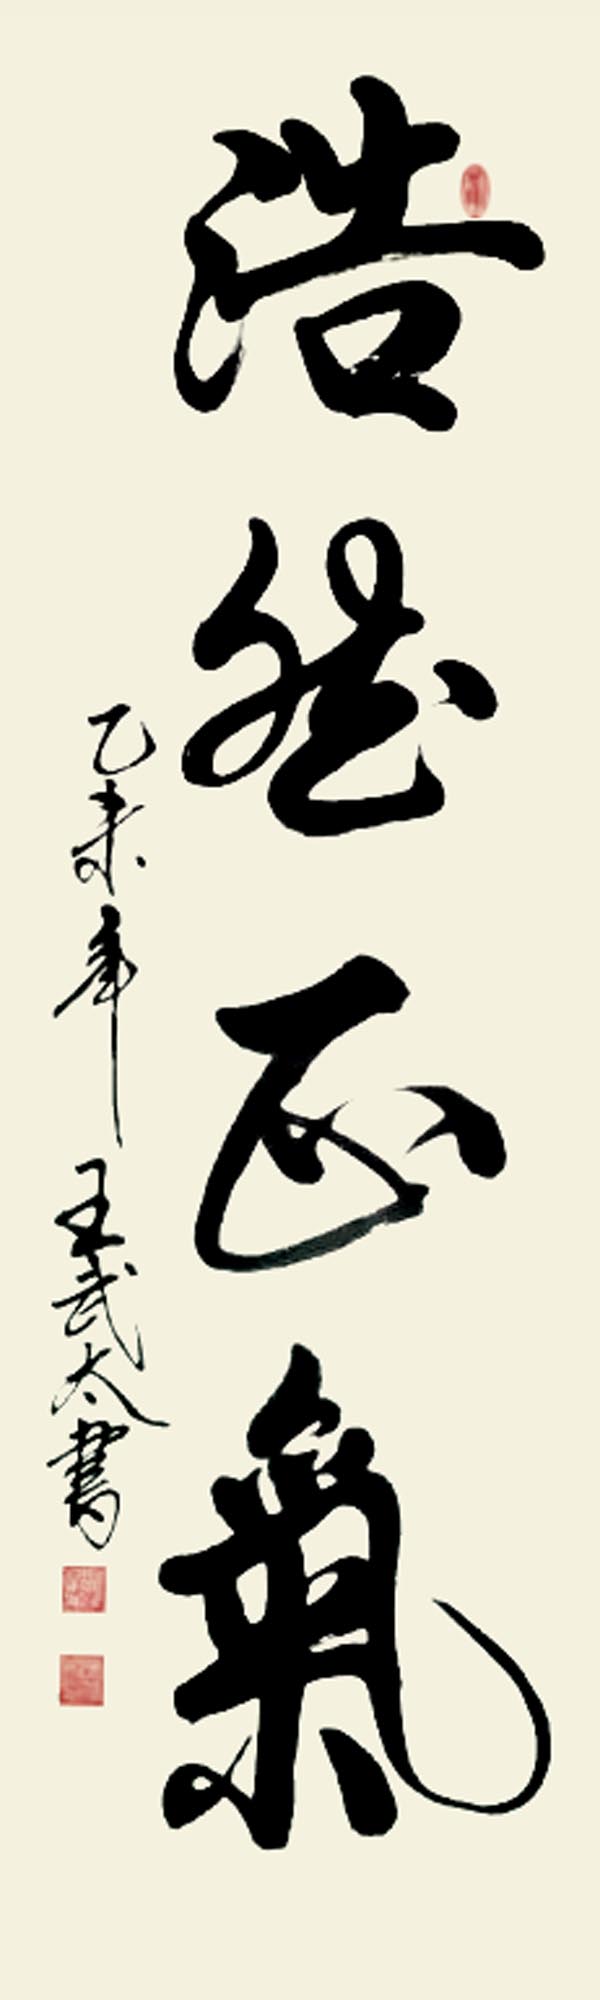 浩然正氣
乙未年 王武太書